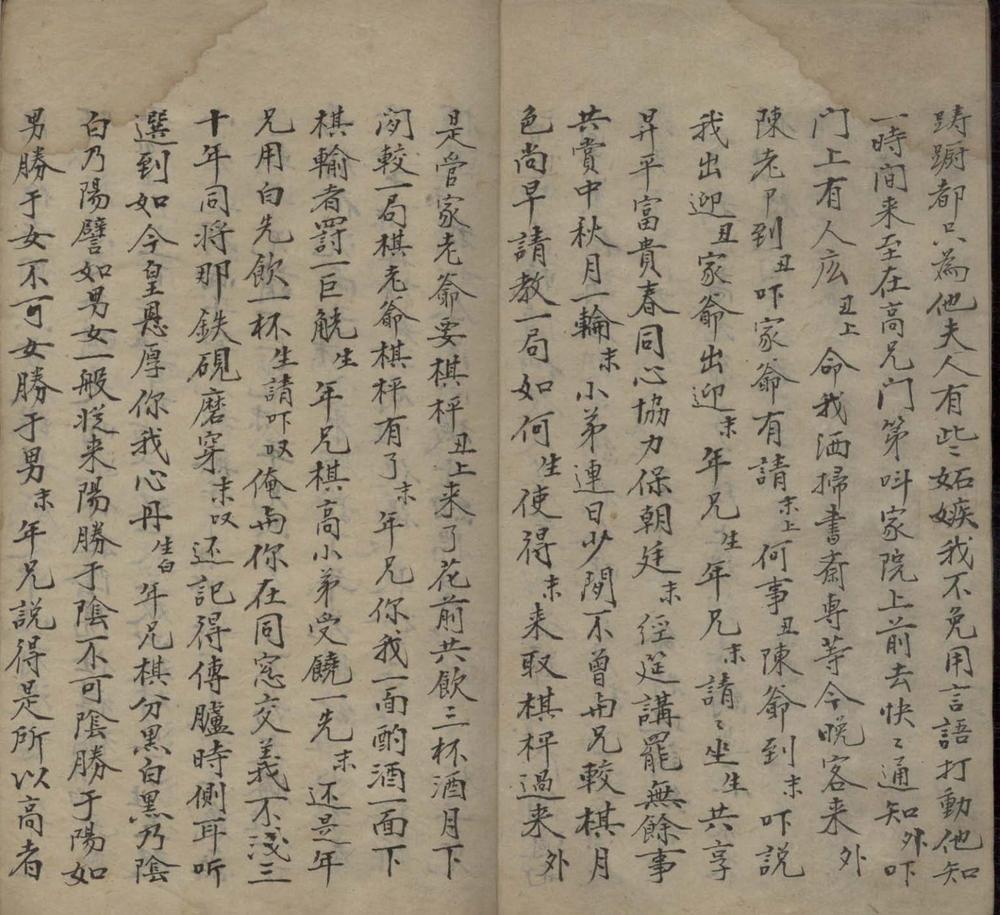 踌蹰都只為他夫人有些〻妬嫉我不免用言語打動他知
一時間来至在高兄门第呌家院上前去快〻通知外吓
门上有人広丑上命我洒掃書斎専等今晚客来外
陳老尸到丑吓家爺有請末上何事丑陳爺到末吓説
我出迎丑家爺出迎末年兄生年兄末請〻坐生共享
昇平富貴春同心協力保朝廷末經筵講罷無餘事
共賞中秋月一輪末小弟連日少閒不曾与兄較棋月
色尚早請教一局如何生使得末来取棋枰過来外
是管家老爺要棋枰丑上来了花前共飲三杯酒月下
閑較一局棋老爺棋枰有了末年兄你我一面酌酒一面下
棋輸者罸一巨觥生年兄棋高小弟受饒一先末还是年
兄用白先飲一杯生請吓叹俺与你在同窓交義不浅三
十年同将那鉄硯磨穿末叹还記得傳臚時側耳听
選到如今皇恩厚你我心丹生白年兄棋分黒白黒乃陰
白乃陽譬如男女一般従来陽勝于陰不可陰勝于陽如
男勝于女不可女勝于男末年兄説得是所以高者